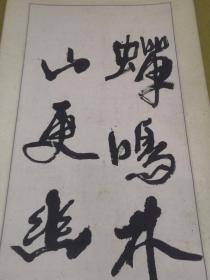 蟬鳴林
山更幽